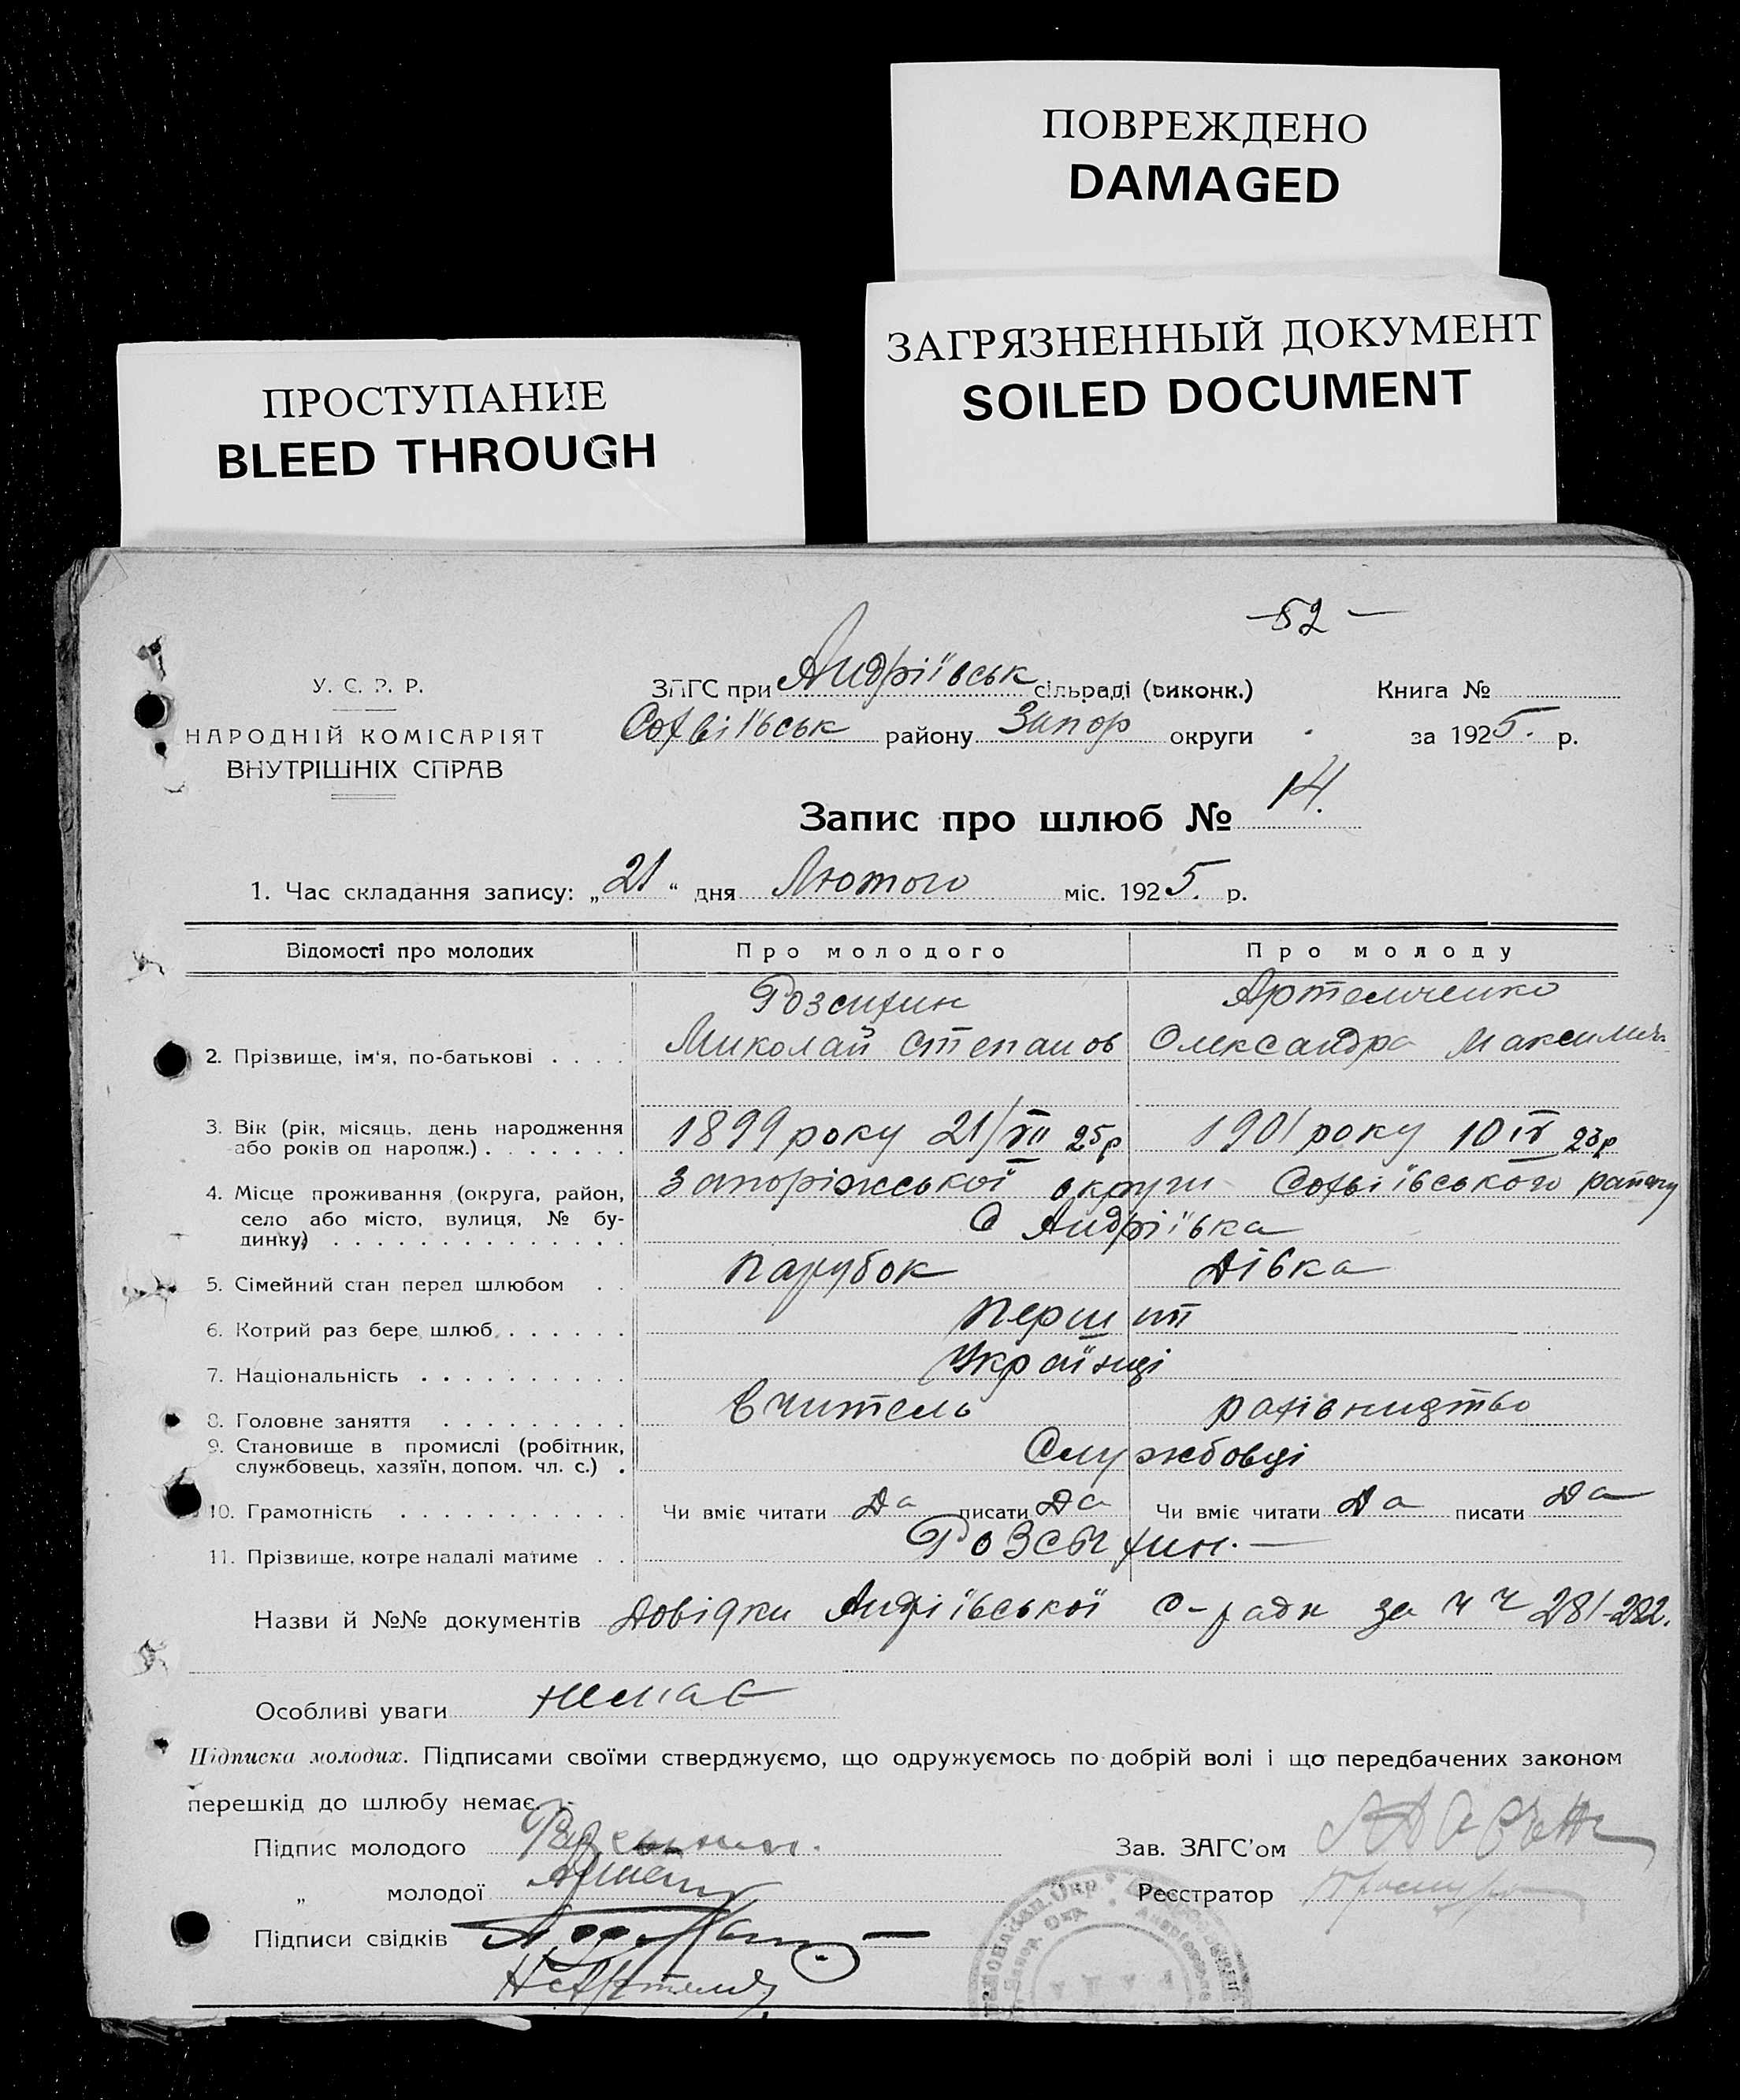 ПОВРЕЖДЕНО
DAMAGED
ЗАГРЯЗНЕННЫЙ ДОКУМЕНТ
SOILED DOCUMENT
ПРОСТУПАНИЕ
BLEED THROUGH
-52-
У. С. Р. Р.
НАРОДНІЙ КОМІСАРІЯТ
ВНУТРІШНІХ СПРАВ
ЗАГС при Андріївськ сільраді (виконк.) Книга №
Софіївськ району Запор округи за 1925. р.
Запис про шлюб № 14.
1. Час складання запису: „21“ дня Лютого міс. 1925. р.
Відомості про молодих Про молодого Про молоду
Розсихин Артемченко
2. Прізвище, ім'я, по-батькові . . . . Миколай Степанов Олександра Максим.
3. Вік (рік, місяць, день народження
або років од народж.) . . . . . . . 1899 року 21/VII 25р 1901 року 10 IV 23р
4. Місце проживання (округа, район, Запоріжської округи Софіївського району
село або місто, вулиця, № бу-
динку) . . . . . . . . . . . . . . С Андріївка
5. Сімейний стан перед шлюбом . . парубок дівка
6. Котрий раз бере шлюб . . . . . . перший
7. Національність . . . . . . . . . . Українці
8. Головне заняття . . . . . . . . . Вчитель рахівництво
9. Становище в промислі (робітник,
службовець, хазяїн, допом. чл. с.) . Службовці
10. Грамотність . . . . . . . . . . . Чи вміє читати Да писати Да Чи вміє читати Да писати Да
11. Прізвище, котре надалі матиме . . Розсыхин.—
Назви й №№ документів Довідки Андріївської с-ради за ч ч 281-282.
Особливі уваги немає
Підписка молодих. Підписами своїми стверджуємо, що одружуємось по добрій волі і що передбачених законом
перешкід до шлюбу немає.
Підпис молодого Зав. ЗАГС'ом
„ молодої Реєстратор
Підписи свідків